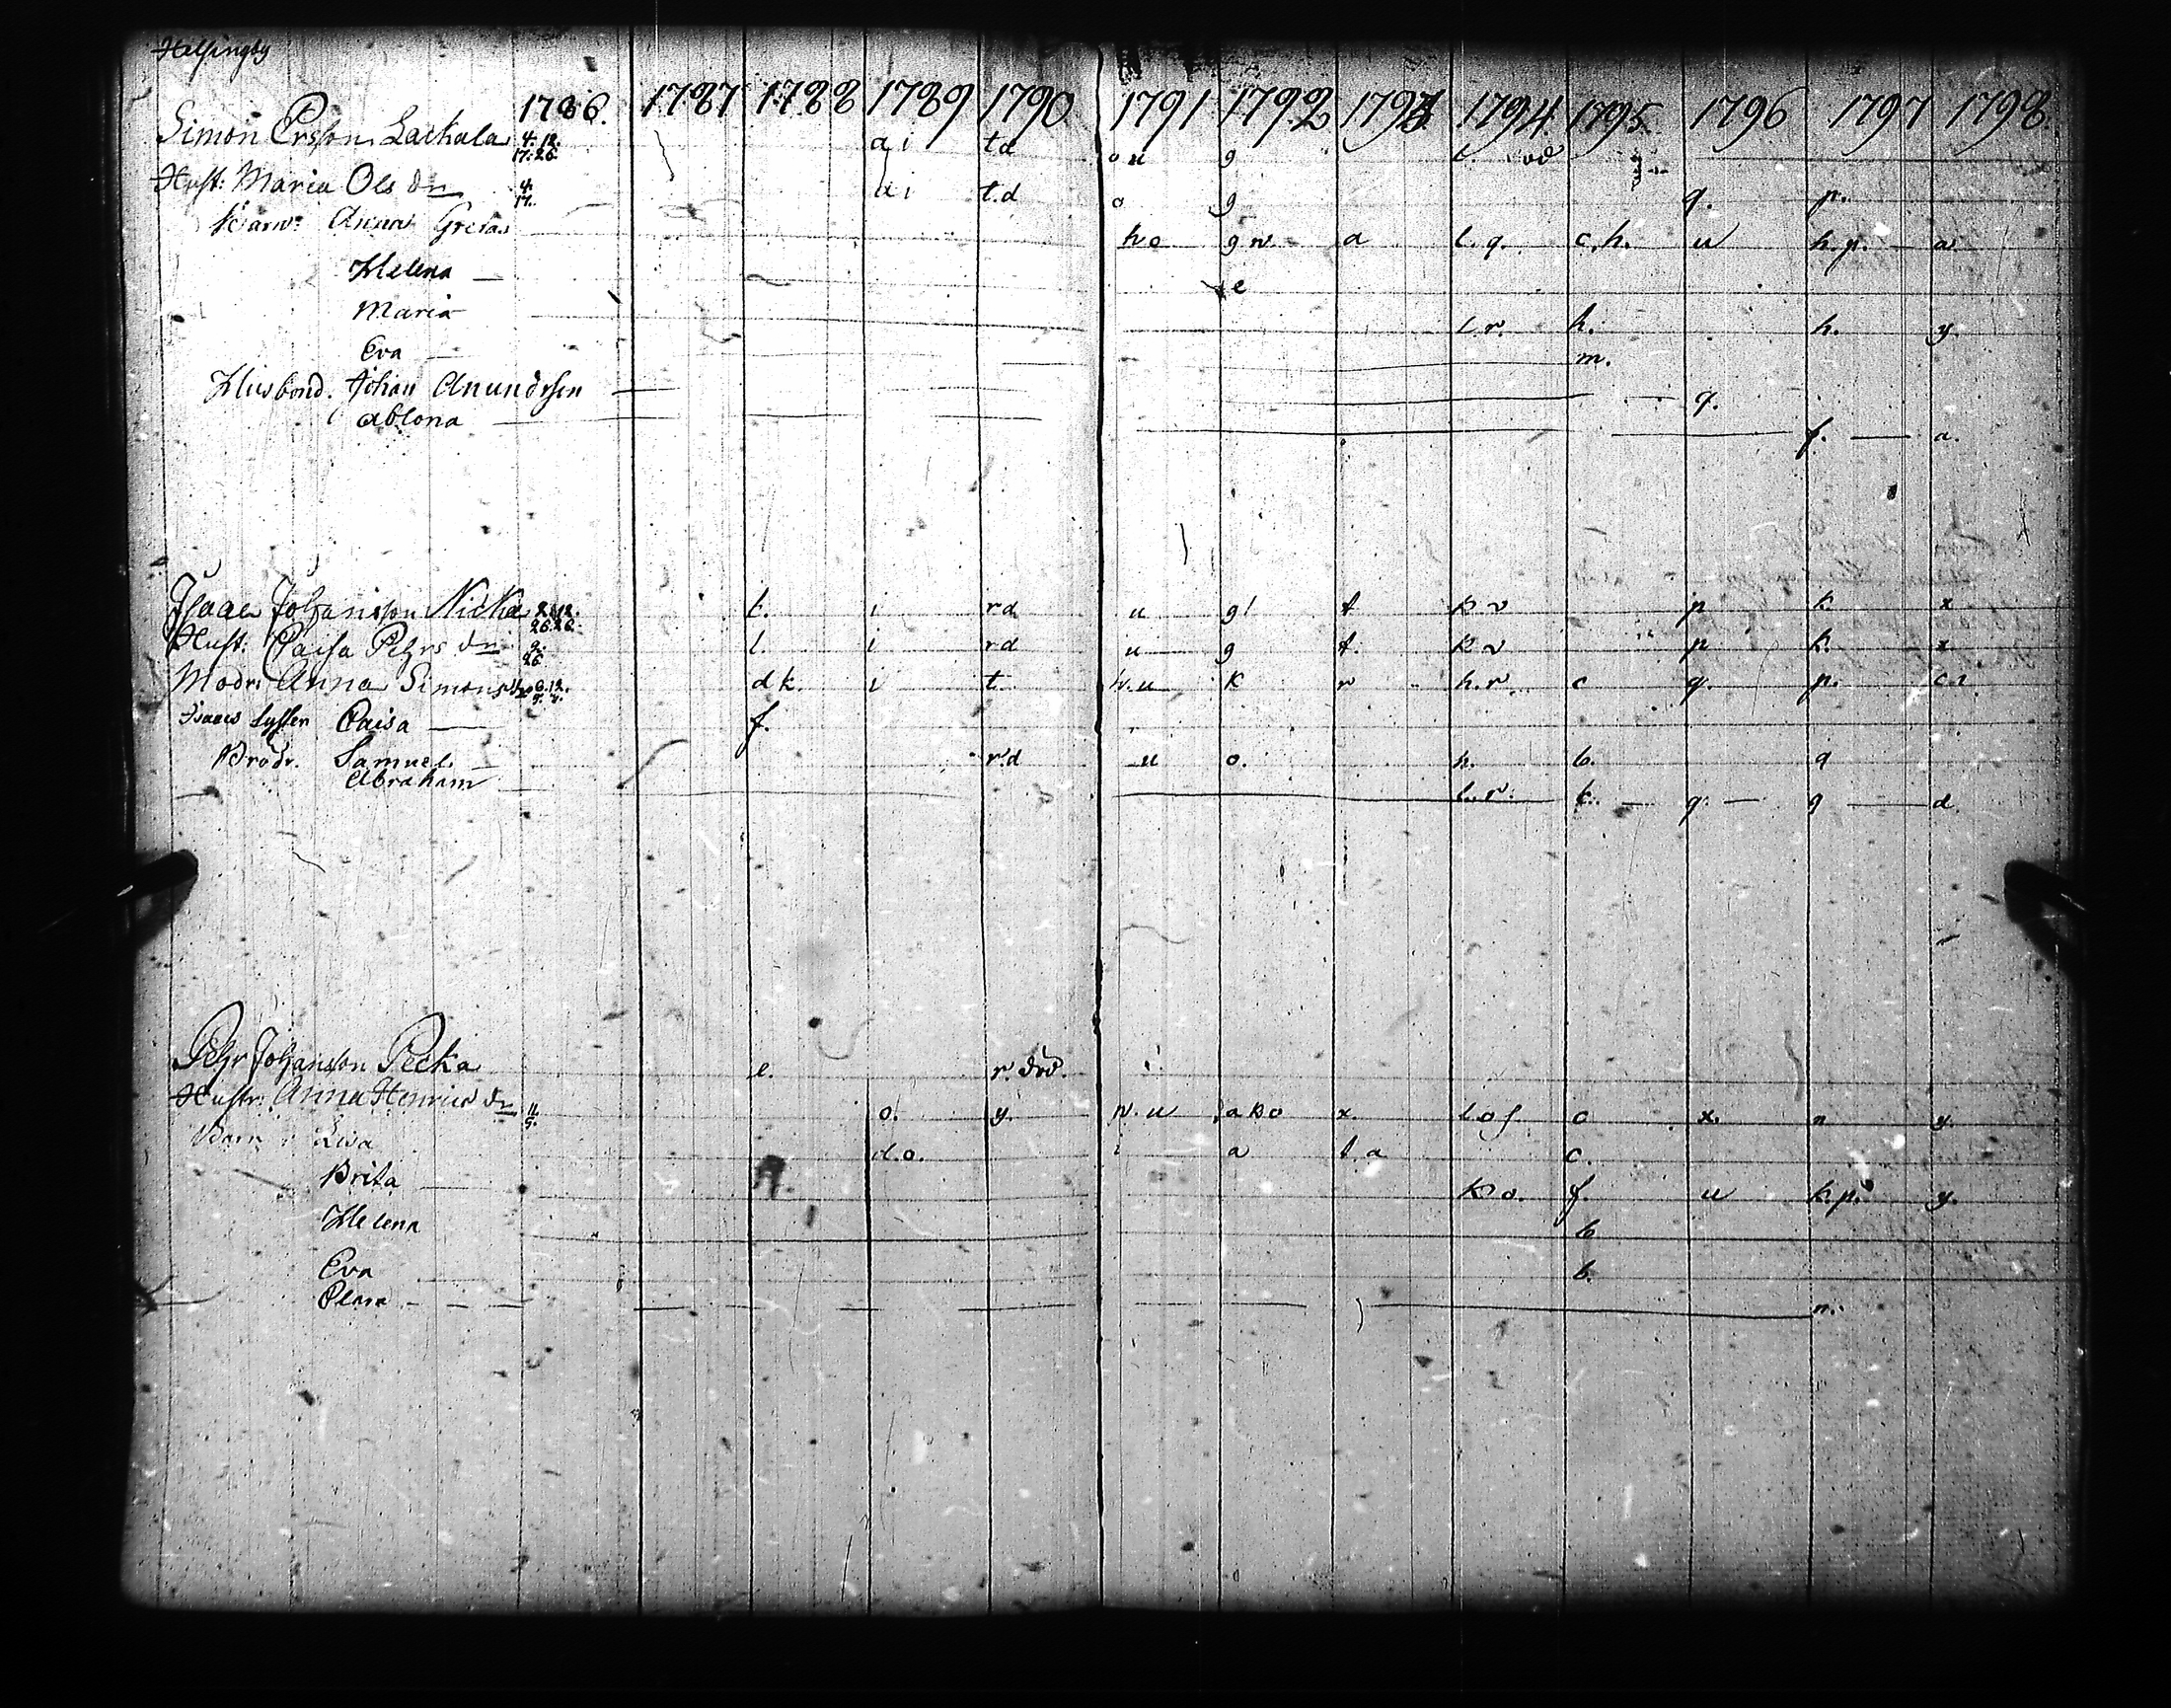 Helsingby
1786. 1787 1788 1789 1790 1791 1792 1793 1794 1795 1796 1797 1798
Simon Ersson Lackala 4. 12. a i t d o u g l. od
17. 26.
Hust: Maria Ols dr 4. a i t. d o g q. p.
17.
Barn: Anna Greta h o g n a l. q. c. h. u h. p. a
Helena e
Maria l r. h. h. y.
Eva m.
Husbond. Johan Anundsson q.
Ablona f. a.
Isaac Johansson Nicka l. i r d u g l t k v p k x
26. 26.
Hust: Caisa Pehrs dr 9. l. i r d u g t. k v p k. x
26.
Modr: Anna Simons dr d k. i t h. u k r h. r. c q. p. c
Isaacs syster Caisa f.
Brodr. Samuel r d u o. h. b. q
Abraham l. r. k. q. g d
Pehr Johansson Pecka e. r. död. i
Hustr: Anna Henrics dr 11. o. y. n. u a k o x. l o f. c x. n y.
9.
Barn: Lisa d. o. i a t a c.
Brita k o. f. u k. p. y.
Helena b
Eva b.
Clara n.